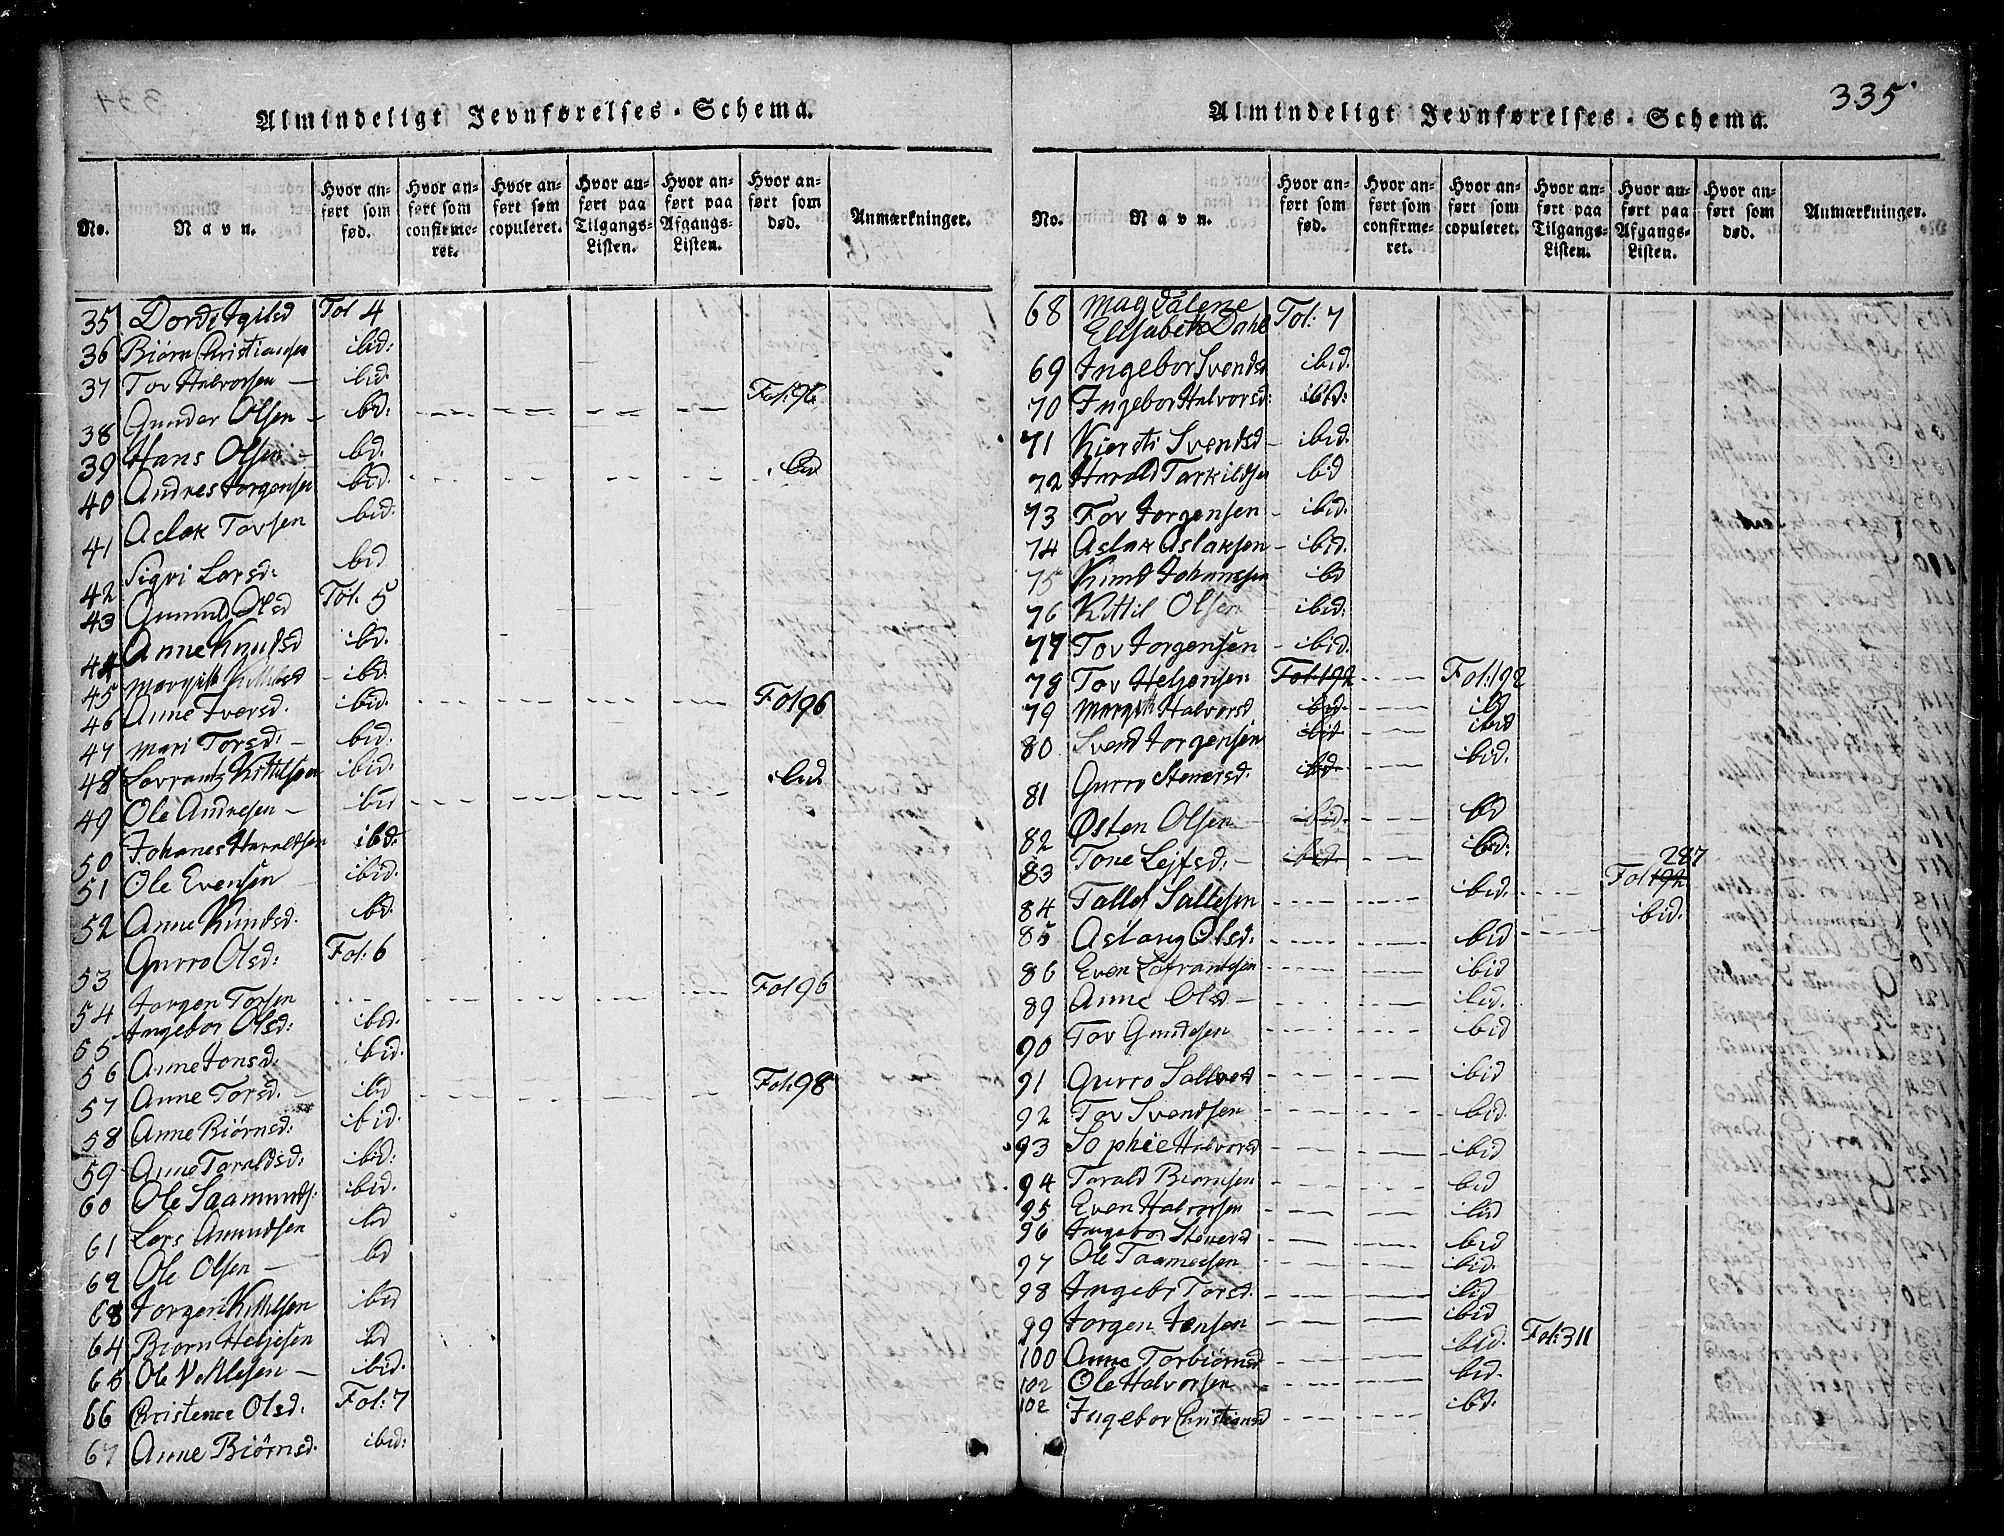 Almindeligt Jevnførelses-Schema.
No. Navn. Hvor anført som fød. Hvor anført som confirmeret. Hvor anført som copuleret. Hvor anført paa Tilgangs-Listen. Hvor anført paa Afgangs-Listen. Hvor anført som død. Anmærkninger.
35 Dorde Igilsd Fol 4
36 Biørn Christiansen ibid:
37 Tov Halvorsen — ibid.
38 Gunder Olsen — ibid: Fol: 96
39 Hans Olsen — ibd.
40 Andres Jorgensen ibid. ibid
41 Aslak Tovsen ibid:
42 Sigri Larsd: ibid
43 Gunnild Olsd Fol: 5
44 Anne Knutsd ibid.
45 Margith Kittilsd ibid.
46 Anne Iversd. ibid. Fol 96
47 Mari Torsd: — ibid.
48 Lavrantz Kittilsen ibid.
49 Ole Andresen — ibid ibid.
50 Johanes Haraldsen ibid.
51 Ole Evensen ibid.
52 Anne Knudsd. ibid.
53 Gurro Olsd: Fol: 6
54 Jorgen Torsen Fol 96
55 Ingebor Olsd: ibid.
56 Anne Jonsd: ibid.
57 Anne Torsd. — ibid Fol: 98
58 Anne Biörnsd: ibid.
59 Anne Toraldsd: ibid:
60 Ole Saamunds: ibid.
61 Lars Amundsen ibd
62 Ole Olsen — ibd
63 Jorgen Kittilsen ibid
64 Biorn Heljesen ibd
65 Ole Nillesen — ibid.
66 Christence Olsd. Fol: 7
67 Anne Biörnsd. ibid:
335
Almindeligt Jevnførelses-Schema.
No. Navn. Hvor anført som fød. Hvor anført som confirmeret. Hvor anført som copuleret. Hvor anført paa Tilgangs-Listen. Hvor anført paa Afgangs-Listen. Hvor anført som død. Anmærkninger.
68 Magdalene
Elisabeth Dahl Fol: 7
69 Ingebor Svendsd ibid.
70 Ingebor Halvorsd: ibid:
71 Kiersti Svendsd — ibid.
72 Harald Tarkildsen ibid
73 Tov Jorgensen — ibid.
74 Aslak Aslaksen — ibid.
75 Knud Johanssen ibd
76 Kittil Olsen — ibid.
77 Tov Jorgensen — ibid.
78 Tov Heljensen Fol: 192 Fol: 192
79 Margith Halvorsd ibid. ibd
80 Svend Jorgensen ibid ibid
81 Gurro Stenersd. ibd. ibid.
82 Østen Olsen ibid. ibd
83 Tone Lejfsd: — ibid. ibid.
287
84 Tallef Sallesen ibid. Fol 192
85 Aslaug Olsd. ibid ibid.
86 Even Lafrantsen ibid
89 Anne Olsd — ibid.
90 Tov Gundesen ibid
91 Gurro Sallvesd ibid
92 Tov Svendsen ibid.
93 Sophie Halvorsd ibid
94 Torald Biornsen ibid
95 Even Halvorsen ibid
96 Ingebor Stenersd ibid
97 Ole Taamesen ibid.
98 Ingebr Torsd. ibid
99 Jorgen Jensen ibid
100 Anne Torbiörnsd ibid. Fol: 311
102 Ole Halvorsen ibid.
102 Ingebor Christiansd ibd.